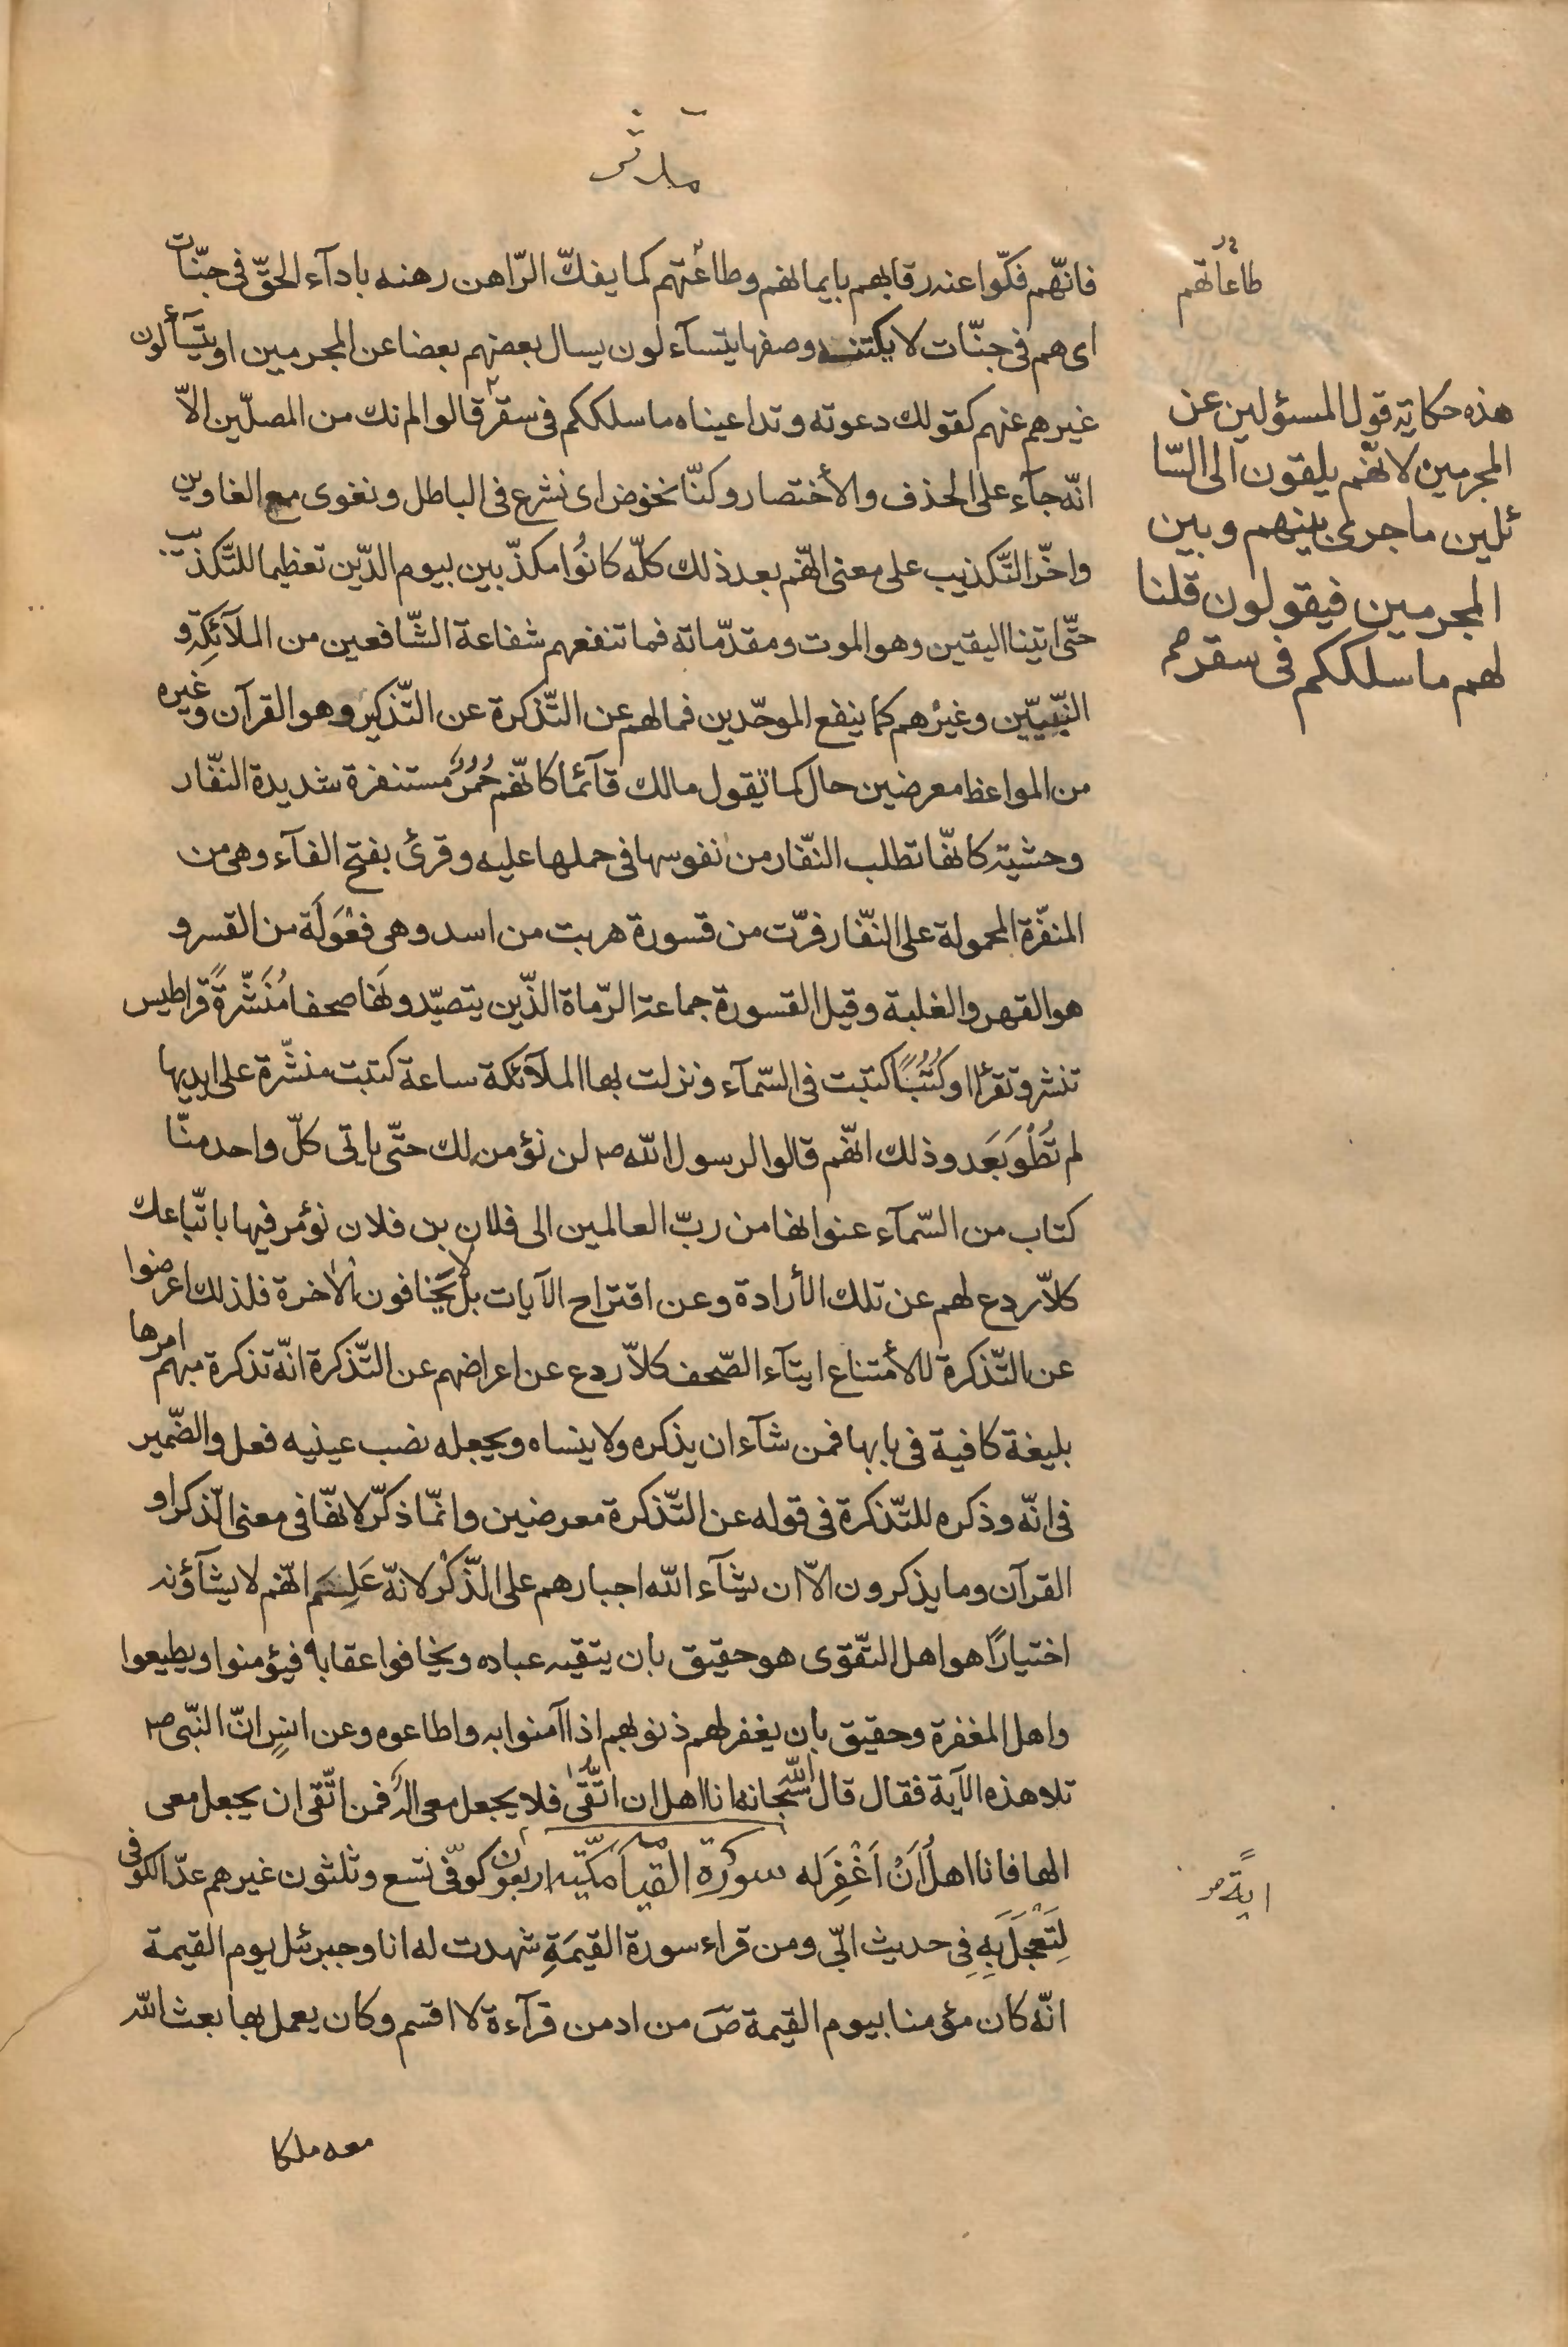 مدثر
فانّهم فكّوا عنه رقابهم بايمانهم وطاعتهم كما يفكّ الرّاهن رهنه بادآء الحقّ فى جنّات
اى هم فى جنّات لا يكتنه وصفها يتسآءلون يسال بعضهم بعضا عن المجرمين او يتسآألون
غيرهم عنهم كقولك دعوته وتداعيناه ما سلككم فى سقر قالوا لم نك من المصلّين الاّ
انّه جآء على الحذف والأختصار وكنّا نخوض اى نشرع فى الباطل ونغوى مع الغاوين
واخّر التّكذيب على معنى انّهم بعد ذلك كلّه كانُوا مكذّبين بيوم الدّين تعظيما للتّكذيب
حتّى اتينا اليقين وهو الموت ومقدّماته فما تنفعهم شفاعة الشّافعين من الملآئِكة و
النّبيّين وغيرُهم كما ينفع الموحّدين فما لهم عن التّذكرة عن التّذكير وهو القرآن وغيره
من المواعظ معرضين حال كما تقول مالك قآئما كانّهم حُمُرٌ مستنفرة شديدة النّفار
وحشيّة كانّها تطلب النّفار من نفوسها فى حملها عليه وقرئ بفتح الفآء وهى من
المنفّرة المحمولة على النّفار فرّت من قسورة هربت من اسد وهى فَعْوَلَة من القسر و
هو القهر والغلبة وقيل القسورة جماعة الرّماة الذّين يتصيّدونها صحفا مُنَشّرةً قراطيس
تنشر وتقرأ او كُتُبًا كتبت فى السّمآء ونزلت بها الملآئكة ساعة كتبت منشّرة على ايديها
لم تُطْوَ بَعَد وذلك انّهم قالوا لرسول الله ص لن نؤمن لك حتّى ياتى كلّ واحد منّا
كتاب من السّمآء عنوانها من ربّ العالمين الى فلان بن فلان نؤمر فيها باتّباعك
كلاّ ردع لهم عن تلك الأرادة وعن اقتراح الآيات بل لا يخافون الاخرة فلذلك اعرضوا
عن التّذكرة لا لأمتناع ايتآء الصّحف كلاّ ردع عن اعراضهم عن التّذكرة انّه تذكرة مبهم امرها
بليغة كافية فى بابها فمن شآء ان يذكره ولا ينساه ويجعله نصب عينيه فعل والضّمير
فى انّه وذكره للتّذكرة فى قوله عن التّذكرة معرضين وانّما ذكّر لانّها فى معنى الذّكر او
القرآن وما يذكرون الاّ ان يشآء الله اجبارهم على الذّكْر لانّه عَلِمَ انّهم لا يشآؤنه
اختيارًا هو اهل التّقوى هو حقيق بان يتقيه عباده ويخافوا عقابه فيؤمنوا ويطيعوا
واهل المغفرة وحقيق بان يغفر لهم ذنوبهم اذا آمنوا به واطاعوه وعن انسٍ انّ النّبى ص
تلا هذه الآية فقال قال الله سبحانه انا اهل ان اتّقى فلا يجعل معى اله فمن اتّقى ان يجعل معى
الها فانا اهلٌ اَنْ اَغْفِرَ له سورة القيامة مكّيّه اربعون كوفّى تسع وثلثون غيرهم عدّ الكوفى
لِتَعْجَلَ بِهِ فِى حديث ابّى ومن قراء سورة القيمَةِ شهدت له انا وجبرئل يوم القيمة
انّه كان مؤمنا بيوم القيمة صَ من ادمن قرآءة لا اقسم وكان يعمل بها بعث الله
معه ملكا
طاعاتهم
هذه حكاية قول المسؤلين عن
المجرمين لانّهم يلقون الى السّا
ئلين ما جرى بينهم وبين
المجرمين فيقولون قلنا
لهم ما سلككم فى سقر
ايةً